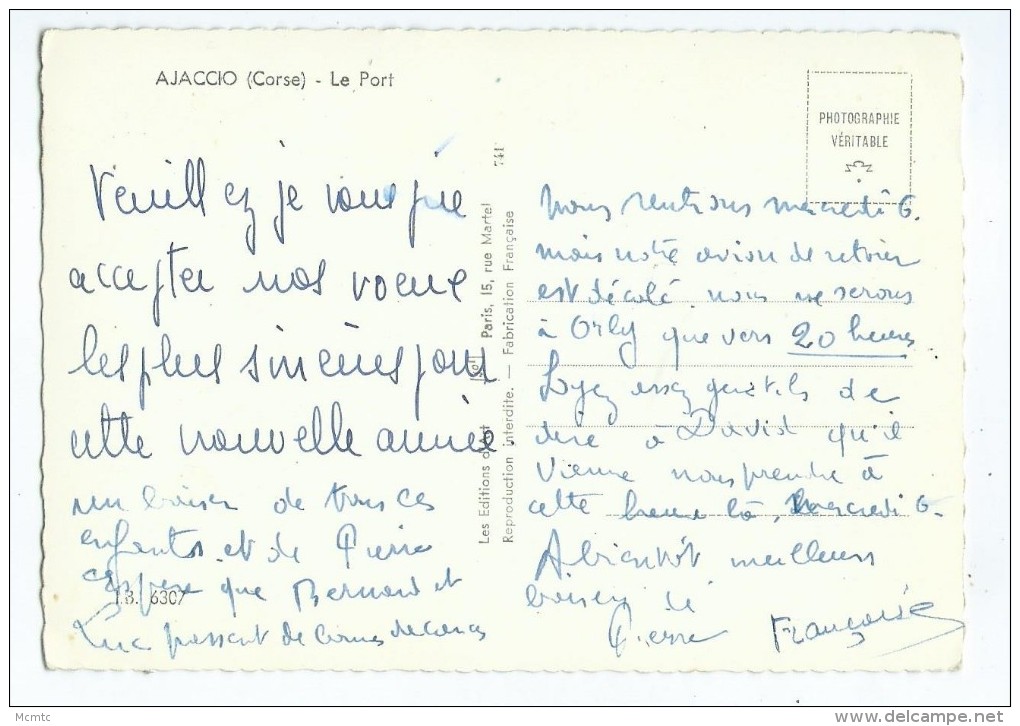 AJACCIO (Corse) - Le Port
PHOTOGRAPHIE
VÉRITABLE
Veuillez je vous prie
accepter nos voeux
les plus sincères pour
cette nouvelle année
un baiser de tous ces
enfants et de Pierre
espère que Bernard et
Luc passent de bonnes vacances
I.B. 6307
Les Editions d'Art Paris, 15, rue Martel 741
Reproduction Interdite. — Fabrication Française
Nous rentrons mercredi 6.
mais notre avion de retour
est décalé nous ne serons
à Orly que vers 20 heures
Soyez assez gentils de
dire à David qu'il
vienne nous prendre à
cette heure là, mercredi 6.
A bientôt meilleurs
baisers
Pierre Françoise
Mcmtc
delcampe.net